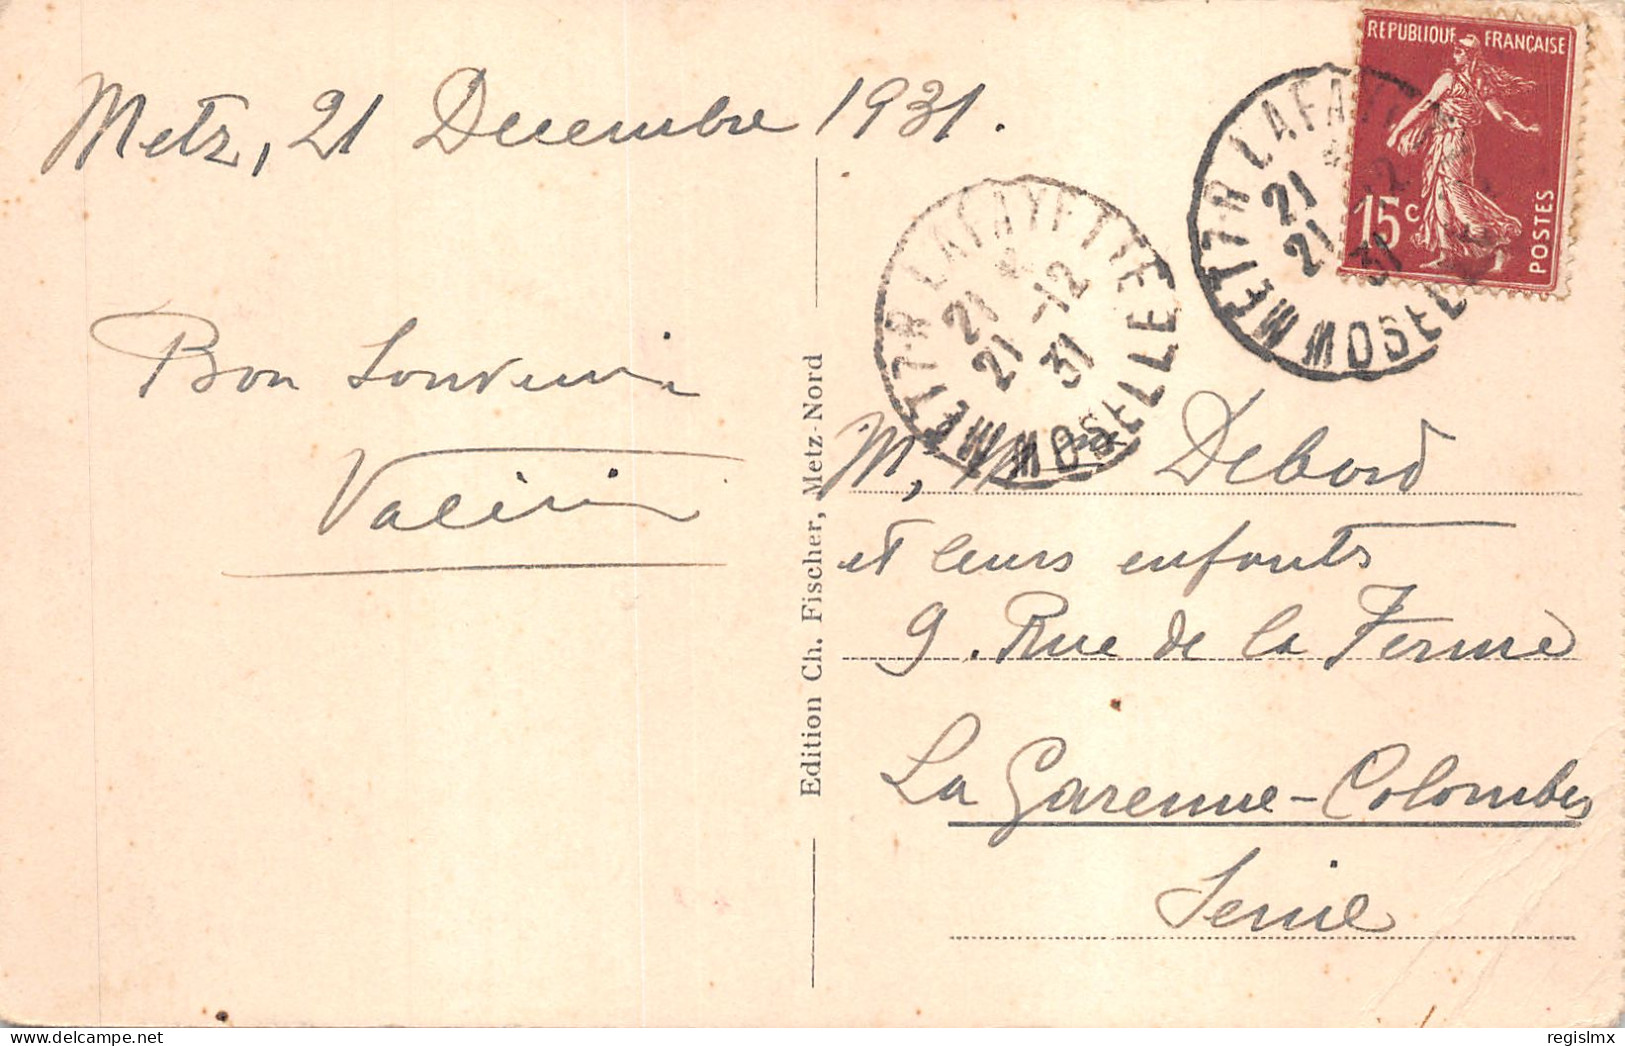 Metz, 21 Decembre 1931.
Bon Souvenir
Edition Ch. Fischer, Metz-Nord
M, Mme Debord
et leurs enfants
9. Rue de la Ferme
La Garenne-Colombes
Seine
METZ R LAFAYETTE
21 -12
21 31
MOSELLE
METZ R LAFAYETTE
21 -12
21 31
MOSELLE
REPUBLIQUE FRANÇAISE
15c
POSTES
www.delcampe.net
regislmx